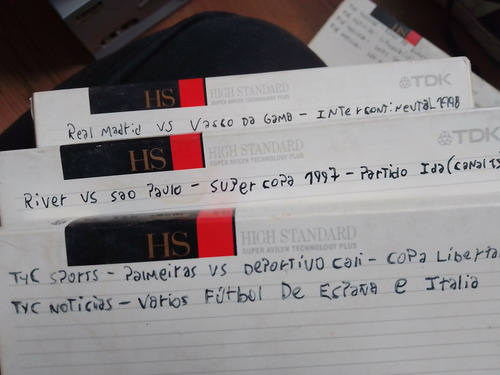 HS
HS
HIGH STANDARD
SUPER AVILYN TECHNOLOGY PLUS
TDK
Real Madrid VS Vasco Da Gama - Intercontinental 1998
HS
HIGH STANDARD
SUPER AVILYN TECHNOLOGY PLUS
TDK
River VS Sao Paulo - Supercopa 1997 - Partido Ida (Canal
HS
HIGH STANDARD
SUPER AVILYN TECHNOLOGY PLUS
TyC Sports - Palmeiras VS Deportivo Cali - Copa Liberta
TyC Noticias - Varios Fútbol De España e Italia